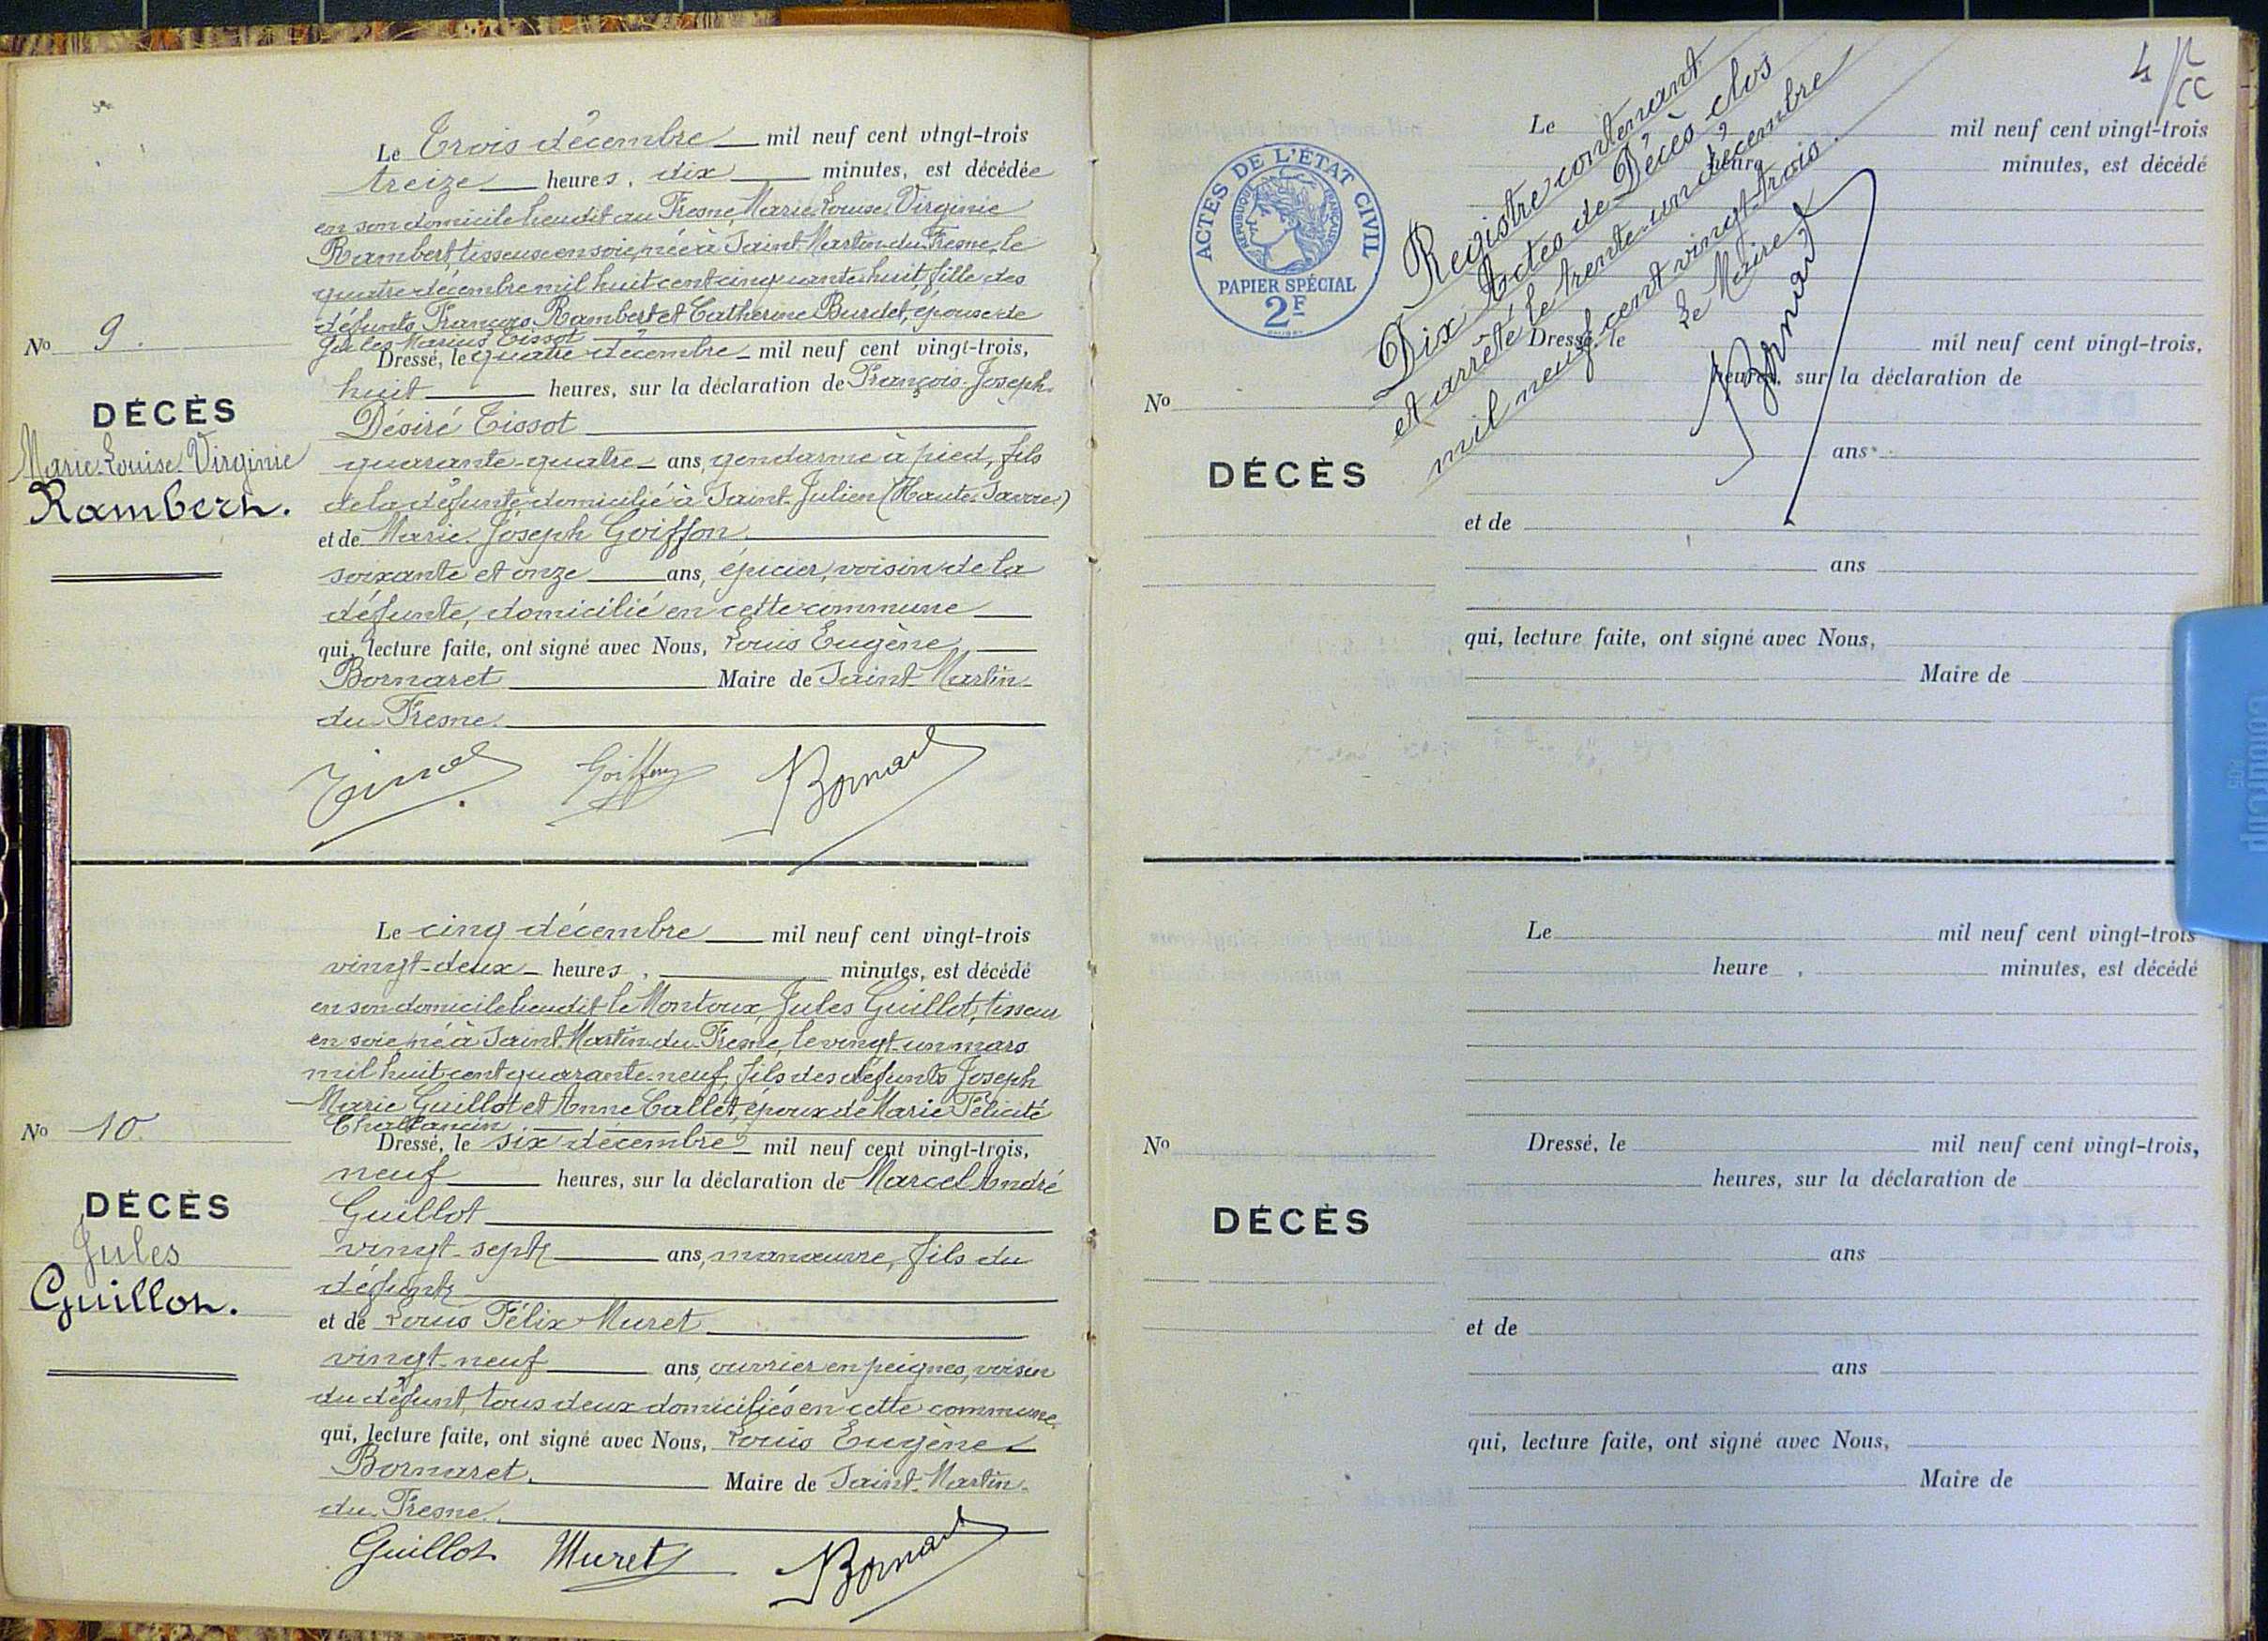 Le Trois décembre mil neuf cent vingt-trois
treize heures, dix minutes, est décédée
en son domicile lieudit au Fresne, Marie Louise Virginie
Rambert, tisseuse en soie, née à Saint-Martin-du-Fresne, le
quatre décembre mil huit cent cinquante-huit, fille des
défunts François Rambert et Catherine Burdet, épouse de
Jules Marius Tissot
No 9.
DÉCÈS
Marie-Louise Virginie
Rambert.
Dressé, le quatre décembre mil neuf cent vingt-trois,
huit heures, sur la déclaration de François-Joseph-
Désiré Tissot
quarante-quatre ans, gendarme à pied, fils
de la défunte, domicilié à Saint-Julien (Haute-Savoie)
et de Marie Joseph Goiffon
soixante et onze ans, épicier, voisin de la
défunte, domicilié en cette commune
qui, lecture faite, ont signé avec Nous, Louis Eugène
Bornaret Maire de Saint-Martin-
du-Fresne.
Tissot Goiffon Bornaret
Le cinq décembre mil neuf cent vingt-trois
vingt-deux heures, minutes, est décédé
en son domicile lieudit le Montoux, Jules Guillot, tisseur
en soie, né à Saint-Martin-du-Fresne, le vingt-un mars
mil huit cent quarante-neuf, fils des défunts Joseph
Marie Guillot et Anne Callet, époux de Marie Félicité
No 10.
DÉCÈS
Jules
Guillot.
Dressé, le six décembre mil neuf cent vingt-trois,
neuf heures, sur la déclaration de Marcel André
Guillot
vingt-sept ans, manœuvre, fils du
défunt
et de Louis Félix Muret
vingt-neuf ans, ouvrier en peignes, voisin
du défunt, tous deux domiciliés en cette commune
qui, lecture faite, ont signé avec Nous, Louis Eugène
Bornaret. Maire de Saint-Martin-
du-Fresne.
Guillot Muret Bornaret
4
ACTES DE L'ÉTAT CIVIL
RÉPUBLIQUE FRANÇAISE
PAPIER SPÉCIAL
2F
Registre contenant
Dix Actes de Décès clos
et arrêté le trente-un décembre
mil neuf cent vingt-trois.
Le Maire
Bornaret
Le mil neuf cent vingt-trois
heure minutes, est décédé
No
DÉCÈS
Dressé, le mil neuf cent vingt-trois,
heures, sur la déclaration de
ans
et de
ans
qui, lecture faite, ont signé avec Nous,
Maire de
Le mil neuf cent vingt-trois
heure, minutes, est décédé
No
DÉCÈS
Dressé, le mil neuf cent vingt-trois,
heures, sur la déclaration de
ans
et de
ans
qui, lecture faite, ont signé avec Nous,
Maire de